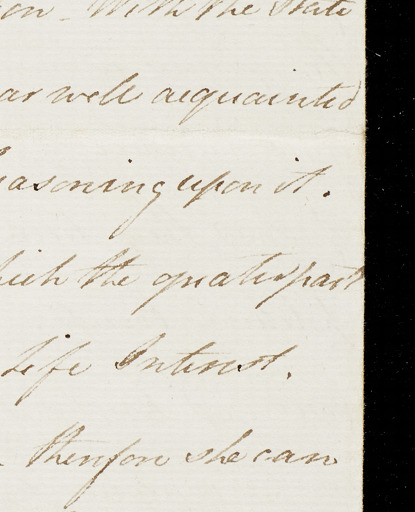 on - With the State
ar well acquainted
easoning upon it.
hich the greatest part
Life Interest.
therefore she can